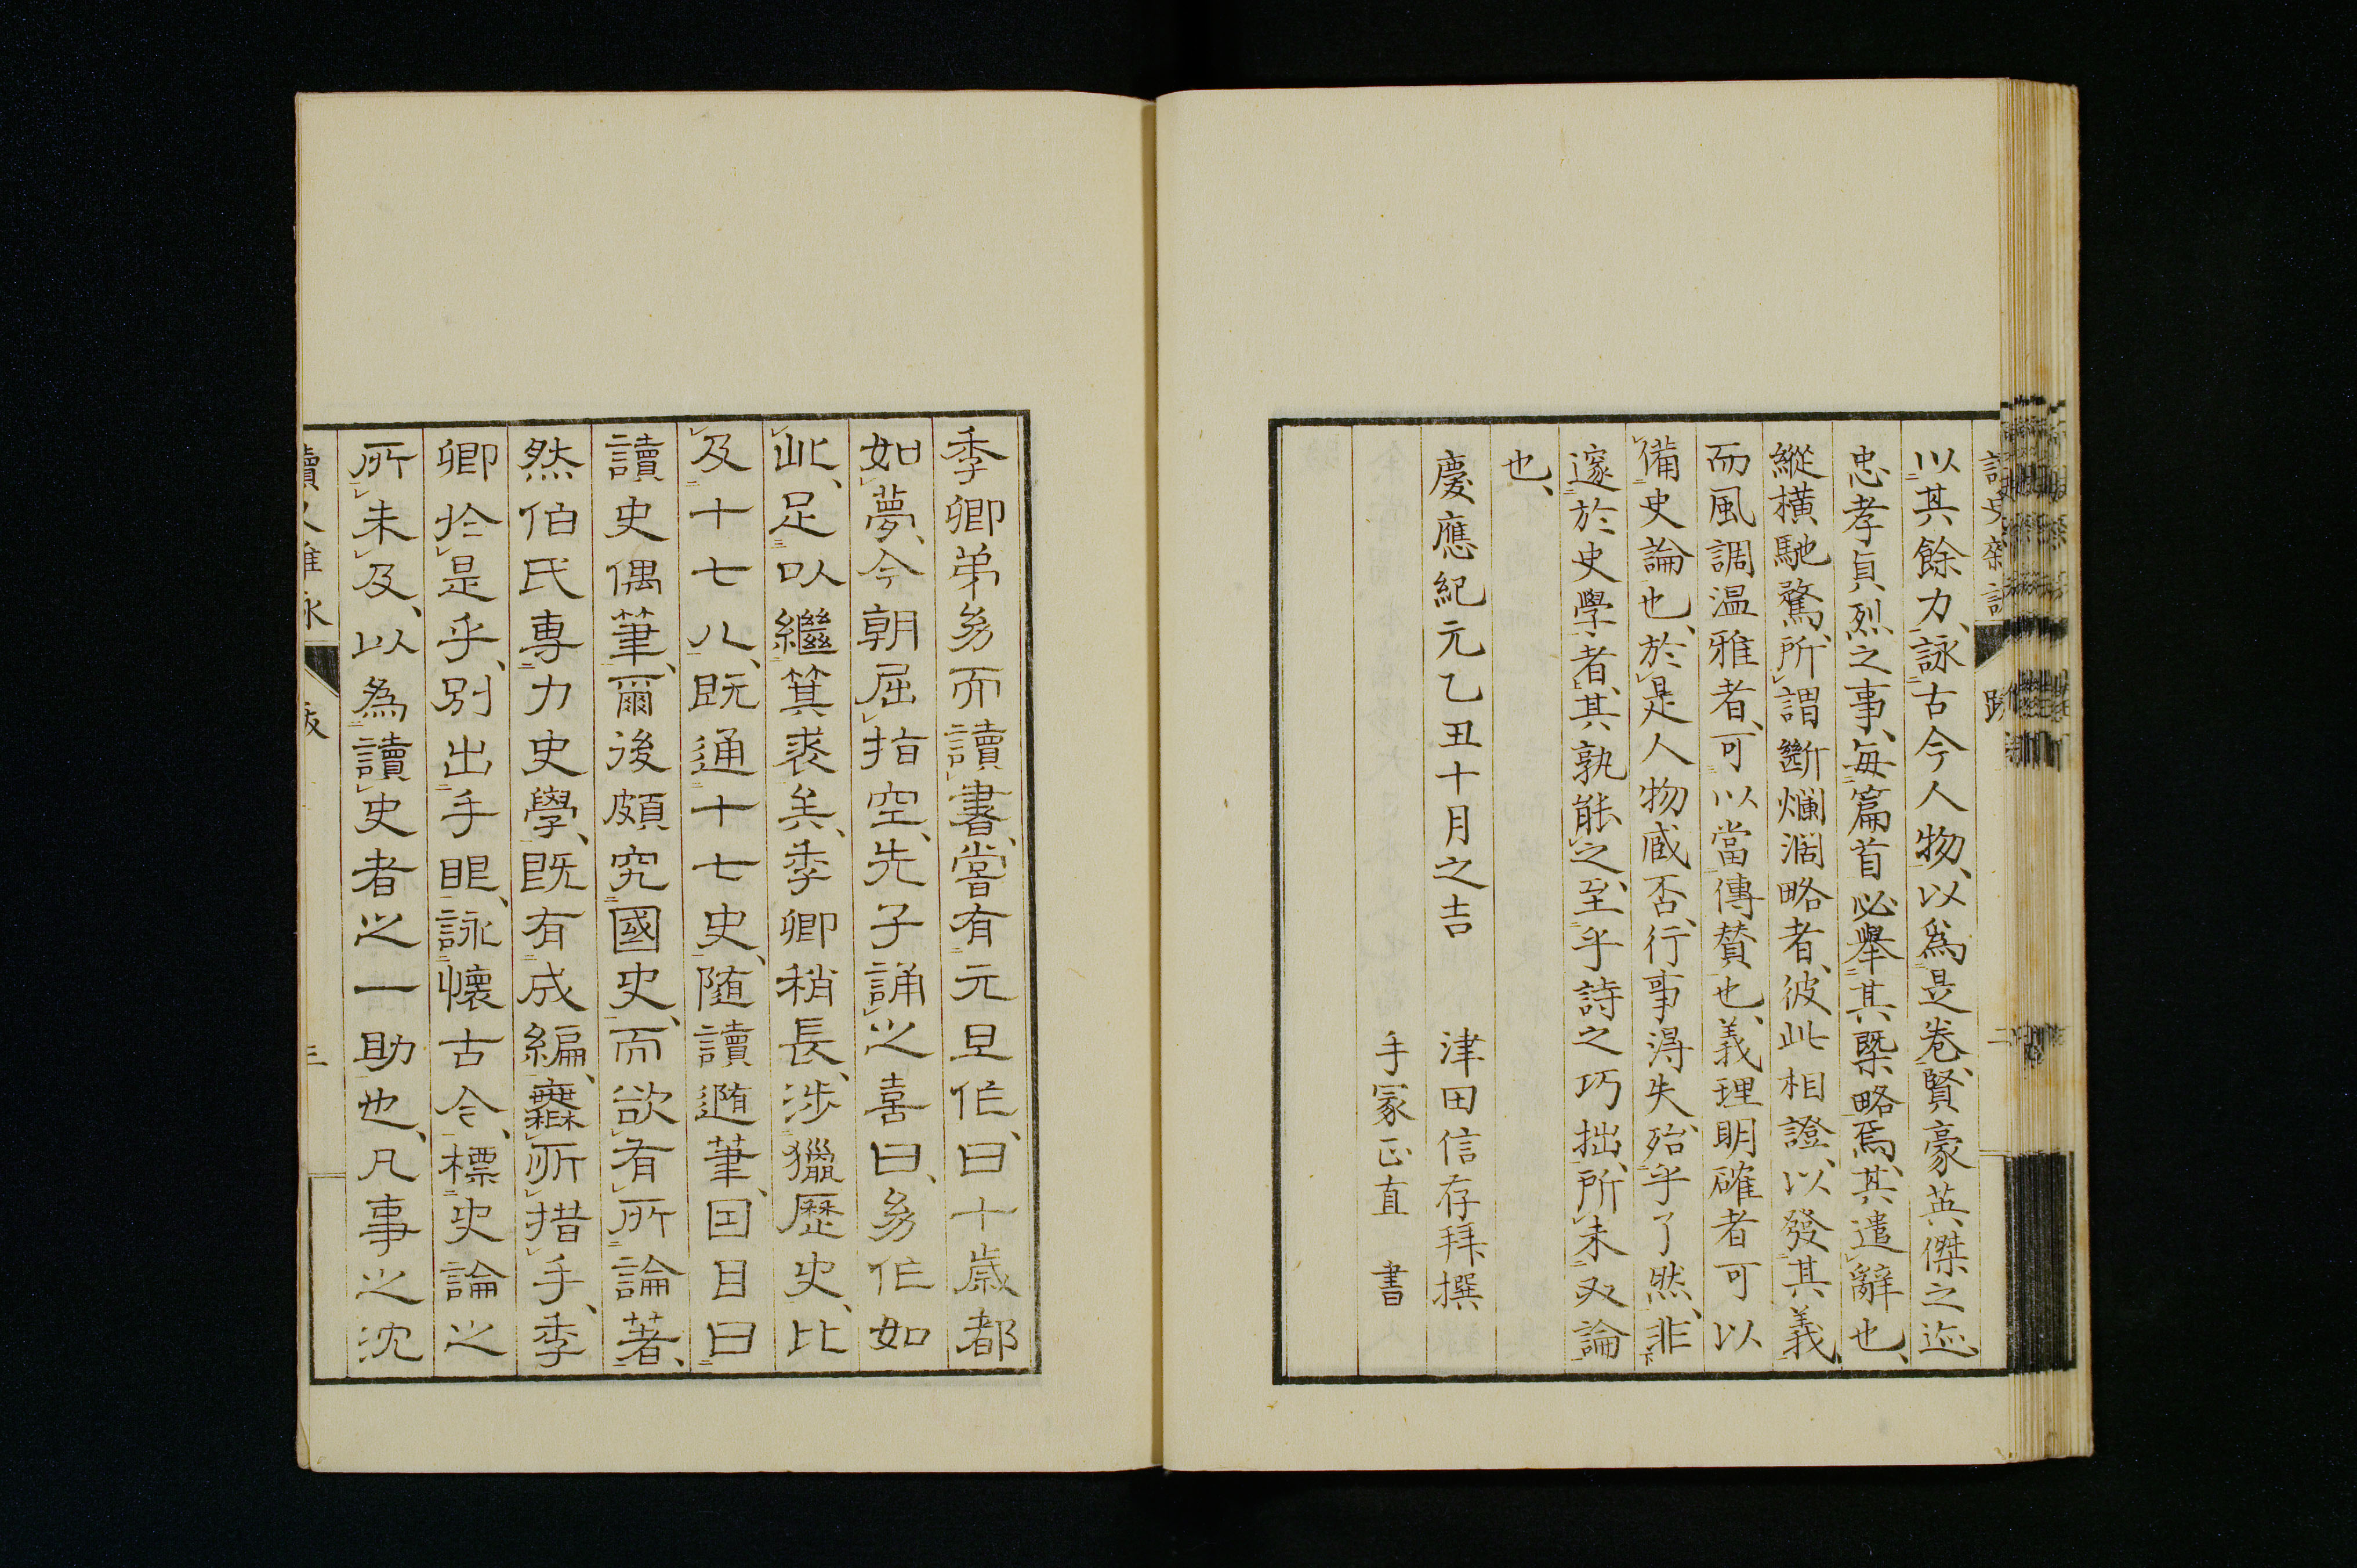 以其餘力、詠古今人物、以爲是卷、賢豪英傑之迹、
忠孝貞烈之事、每篇首必舉其槩略焉、其遣辭也、
縱橫馳騖、所謂斷爛濶略者、彼此相證、以發其義、
而風調溫雅者、可以當傳贊也、義理明確者可以
備史論也、於是人物臧否、行事得失、殆乎了然、非
邃於史學者、其孰能之、至乎詩之巧拙、所未及論
也、
慶應紀元乙丑十月之吉　津田信存拜撰
手冡正直　書
季卿弟㓜而讀書、嘗有元旦作、曰十歲都
如夢、今朝屈指空、先子誦之喜曰、㓜作如
此、足以繼箕裘矣、季卿稍長、涉獵歷史、比
及十七八、既通十七史、隨讀隨筆、因目曰
讀史偶筆、爾後頗究國史、而欲有所論著、
然伯氏專力史學、既有成編、無所措手、季
卿於是乎、別出手眼、詠懷古今、標史論之
所未及、以為讀史者之一助也、凡事之沈
跋
三